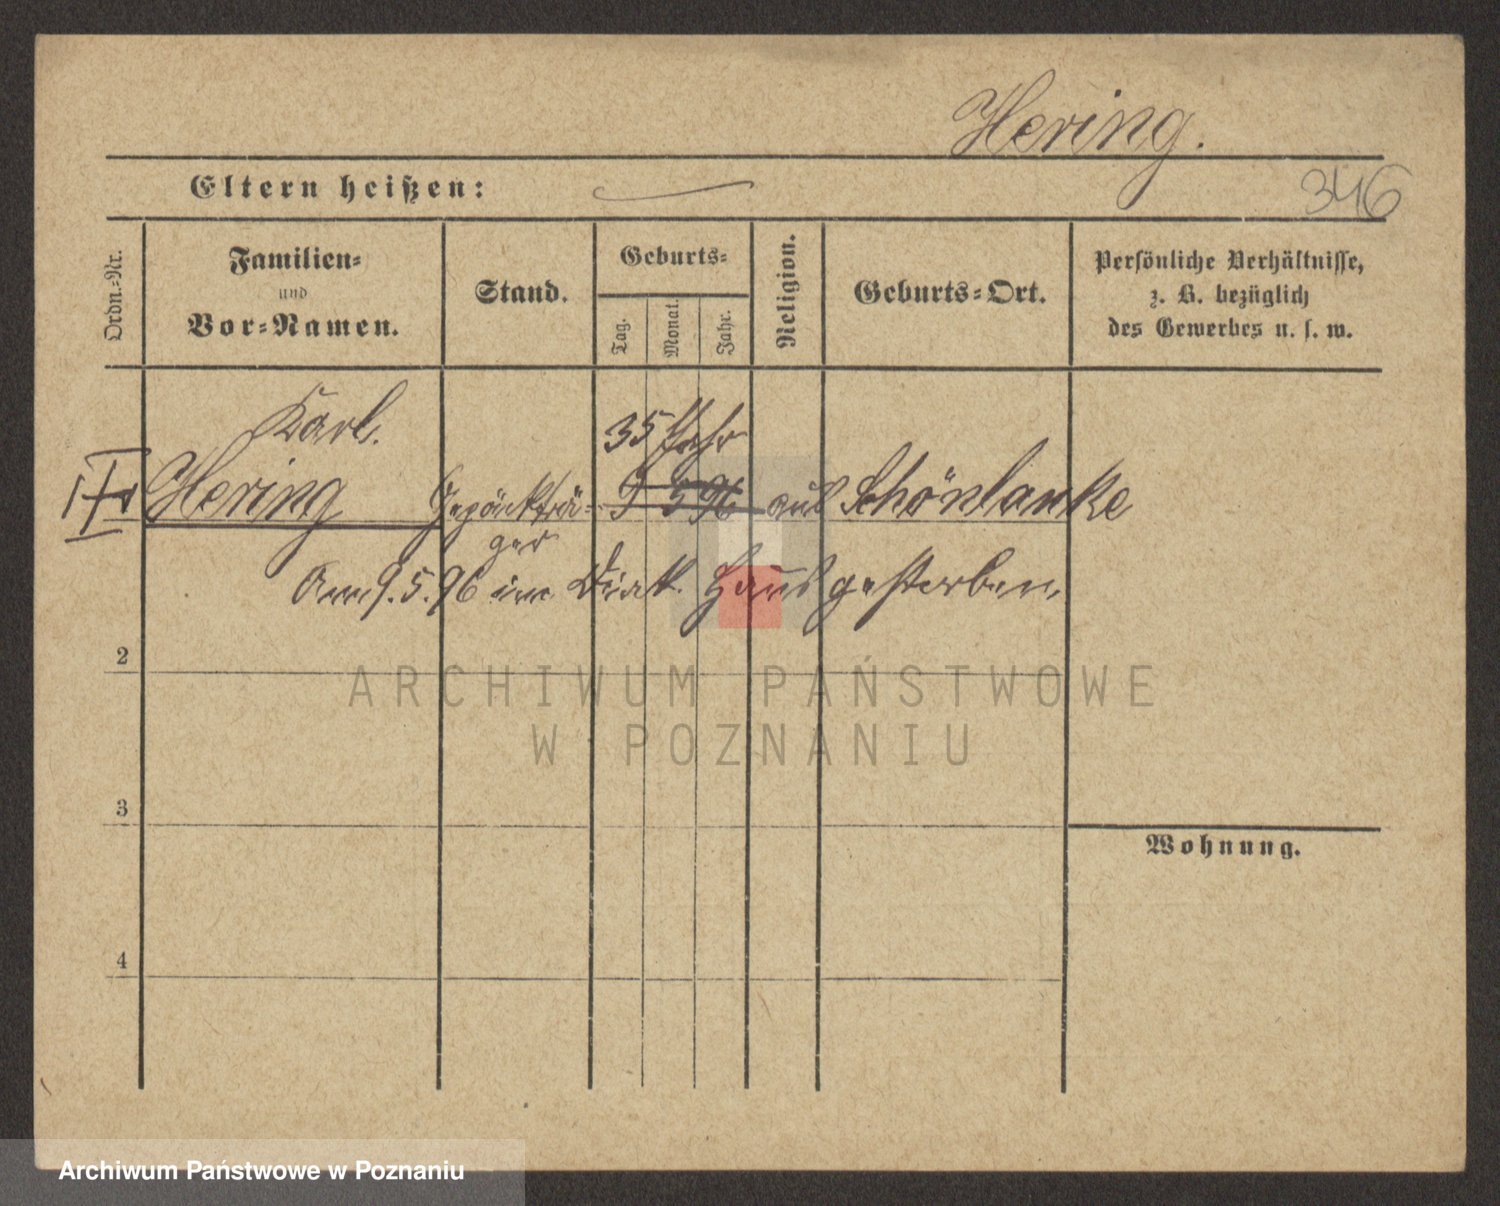 Hering.
Eltern heißen:
346
Ordn.-Nr.
Familien-
und
Vor-Namen.
Stand.
Geburts-
Tag.
Monat.
Jahr.
Religion.
Geburts-Ort.
Persönliche Verhältnisse,
z. B. bezüglich
des Gewerbes u. s. w.
Karl.
35 Jahr
1 Hering Gepäckträ- 9 5 96 aus Schönlanke
ger
Am 9. 5. 96 im Diak. Haus gestorben.
2
ARCHIWUM PAŃSTWOWE
W POZNANIU
3
Wohnung.
4
Archiwum Państwowe w Poznaniu